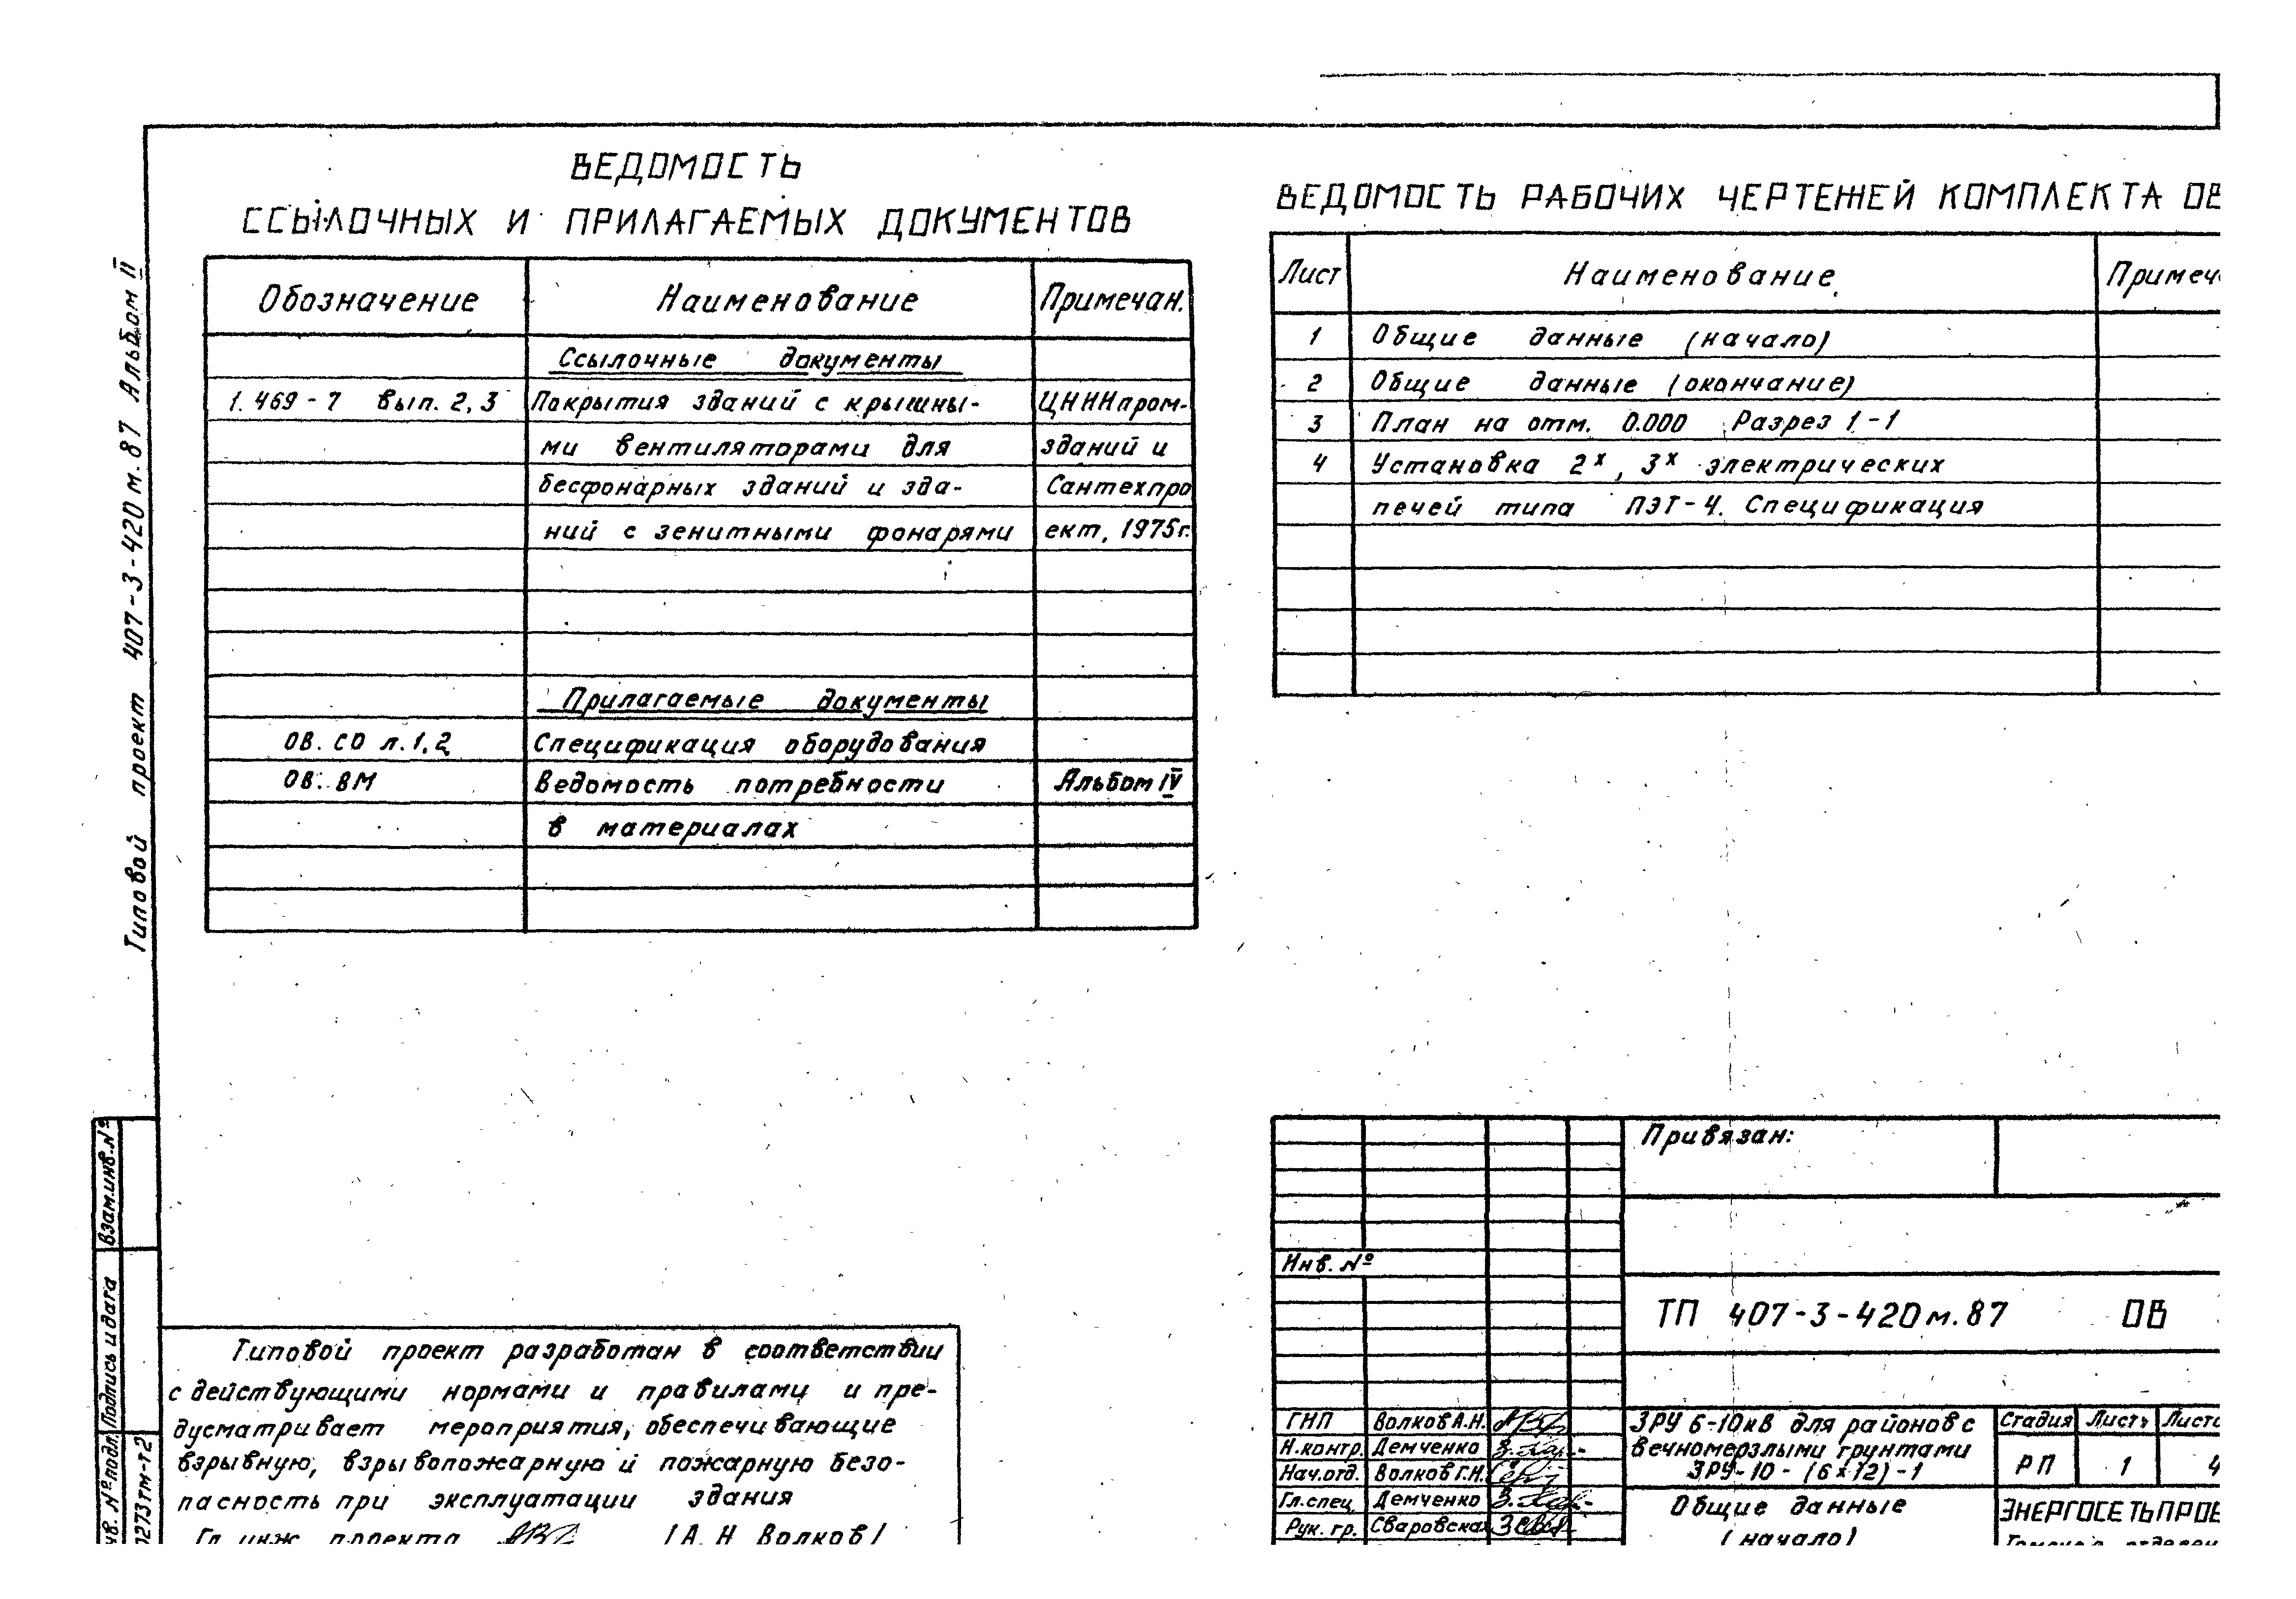 ВЕДОМОСТЬ
ССЫЛОЧНЫХ И ПРИЛАГАЕМЫХ ДОКУМЕНТОВ
Обозначение Наименование Примечан.
Ссылочные документы
1.469-7 вып. 2,3 Покрытия зданий с крышны- ЦНИИпром-
ми вентиляторами для зданий и
бесфонарных зданий и зда- Сантехпро
ний с зенитными фонарями ект, 1975г.
Прилагаемые документы
ОВ. СО л.1,2 Спецификация оборудования
ОВ. ВМ Ведомость потребности Альбом IV
в материалах
ВЕДОМОСТЬ РАБОЧИХ ЧЕРТЕЖЕЙ КОМПЛЕКТА ОВ
Лист Наименование Примеч
1 Общие данные (начало)
2 Общие данные (окончание)
3 План на отм. 0.000 Разрез 1-1
4 Установка 2х, 3х электрических
печей типа ПЭТ-4. Спецификация
Типовой проект 407-3-420м.87 Альбом II
Взам.инв.№
Подпись и дата
нв. № подл.
1273тм-т2
Типовой проект разработан в соответствии
с действующими нормами и правилами и пре-
дусматривает мероприятия, обеспечивающие
взрывную, взрывопожарную и пожарную безо-
пасность при эксплуатации здания
Гл инж проекта /А. Н Волков/
Привязан:
Инв. №
ТП 407-3-420м.87 ОВ
ГИП Волков А.Н.
Н.контр. Демченко
Нач.отд. Волков Г.И.
Гл.спец Демченко
Рук. гр. Сваровская
ЗРУ 6-10кВ для районов с
вечномерзлыми грунтами
ЗРУ-10-(6х12)-1
Стадия Листъ Листо
РП 1 4
Общие данные
(начало)
ЭНЕРГОСЕТЬПРОЕ
Томское отделен